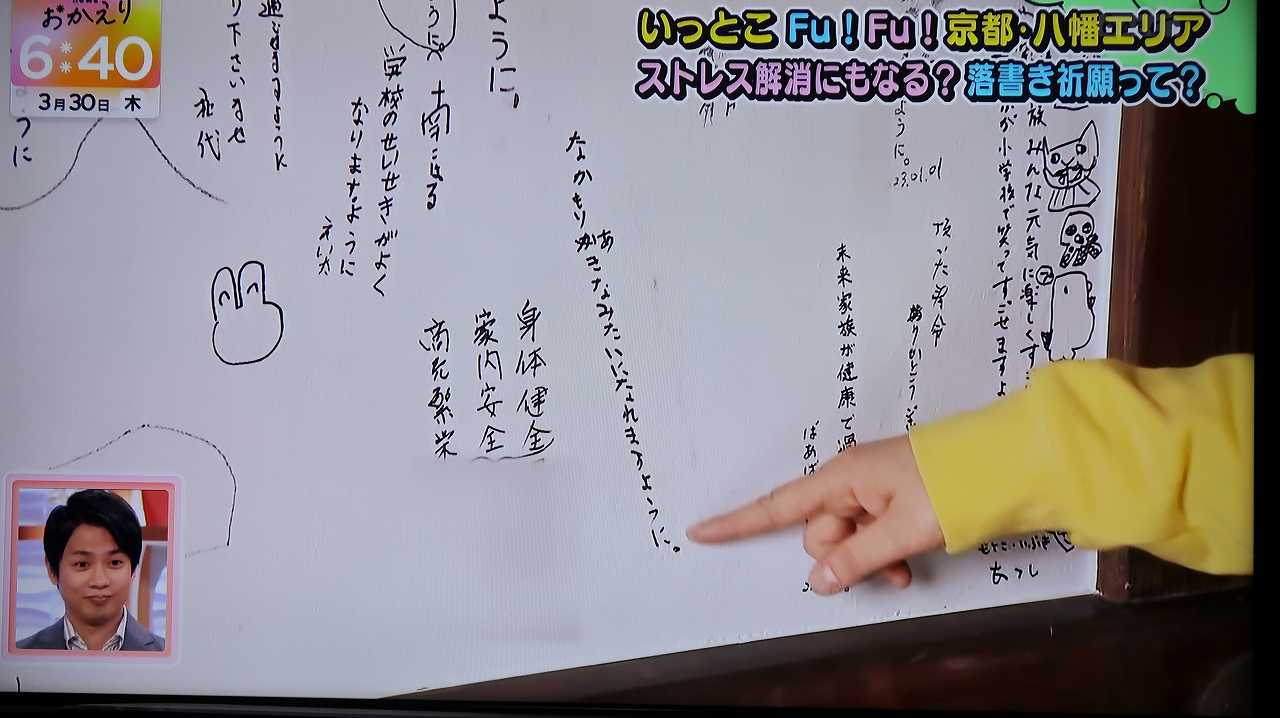 おかえり
6:40
3月30日 木
いっとこ Fu!Fu!京都・八幡エリア
ストレス解消にもなる?落書き祈願って?
放 みんな元気に楽しくすご
が小学校で笑ってすごせますよ
頂いた寿命
ありがとう
未来家族が健康で過
ばあば
ように。
23.01.01
なかもりあきなみたいになれますように。
身体健全
家内安全
商売繁栄
ように、
学校のせいせきがよく
なりますように
えいた
り下さいませ
つに
あつし